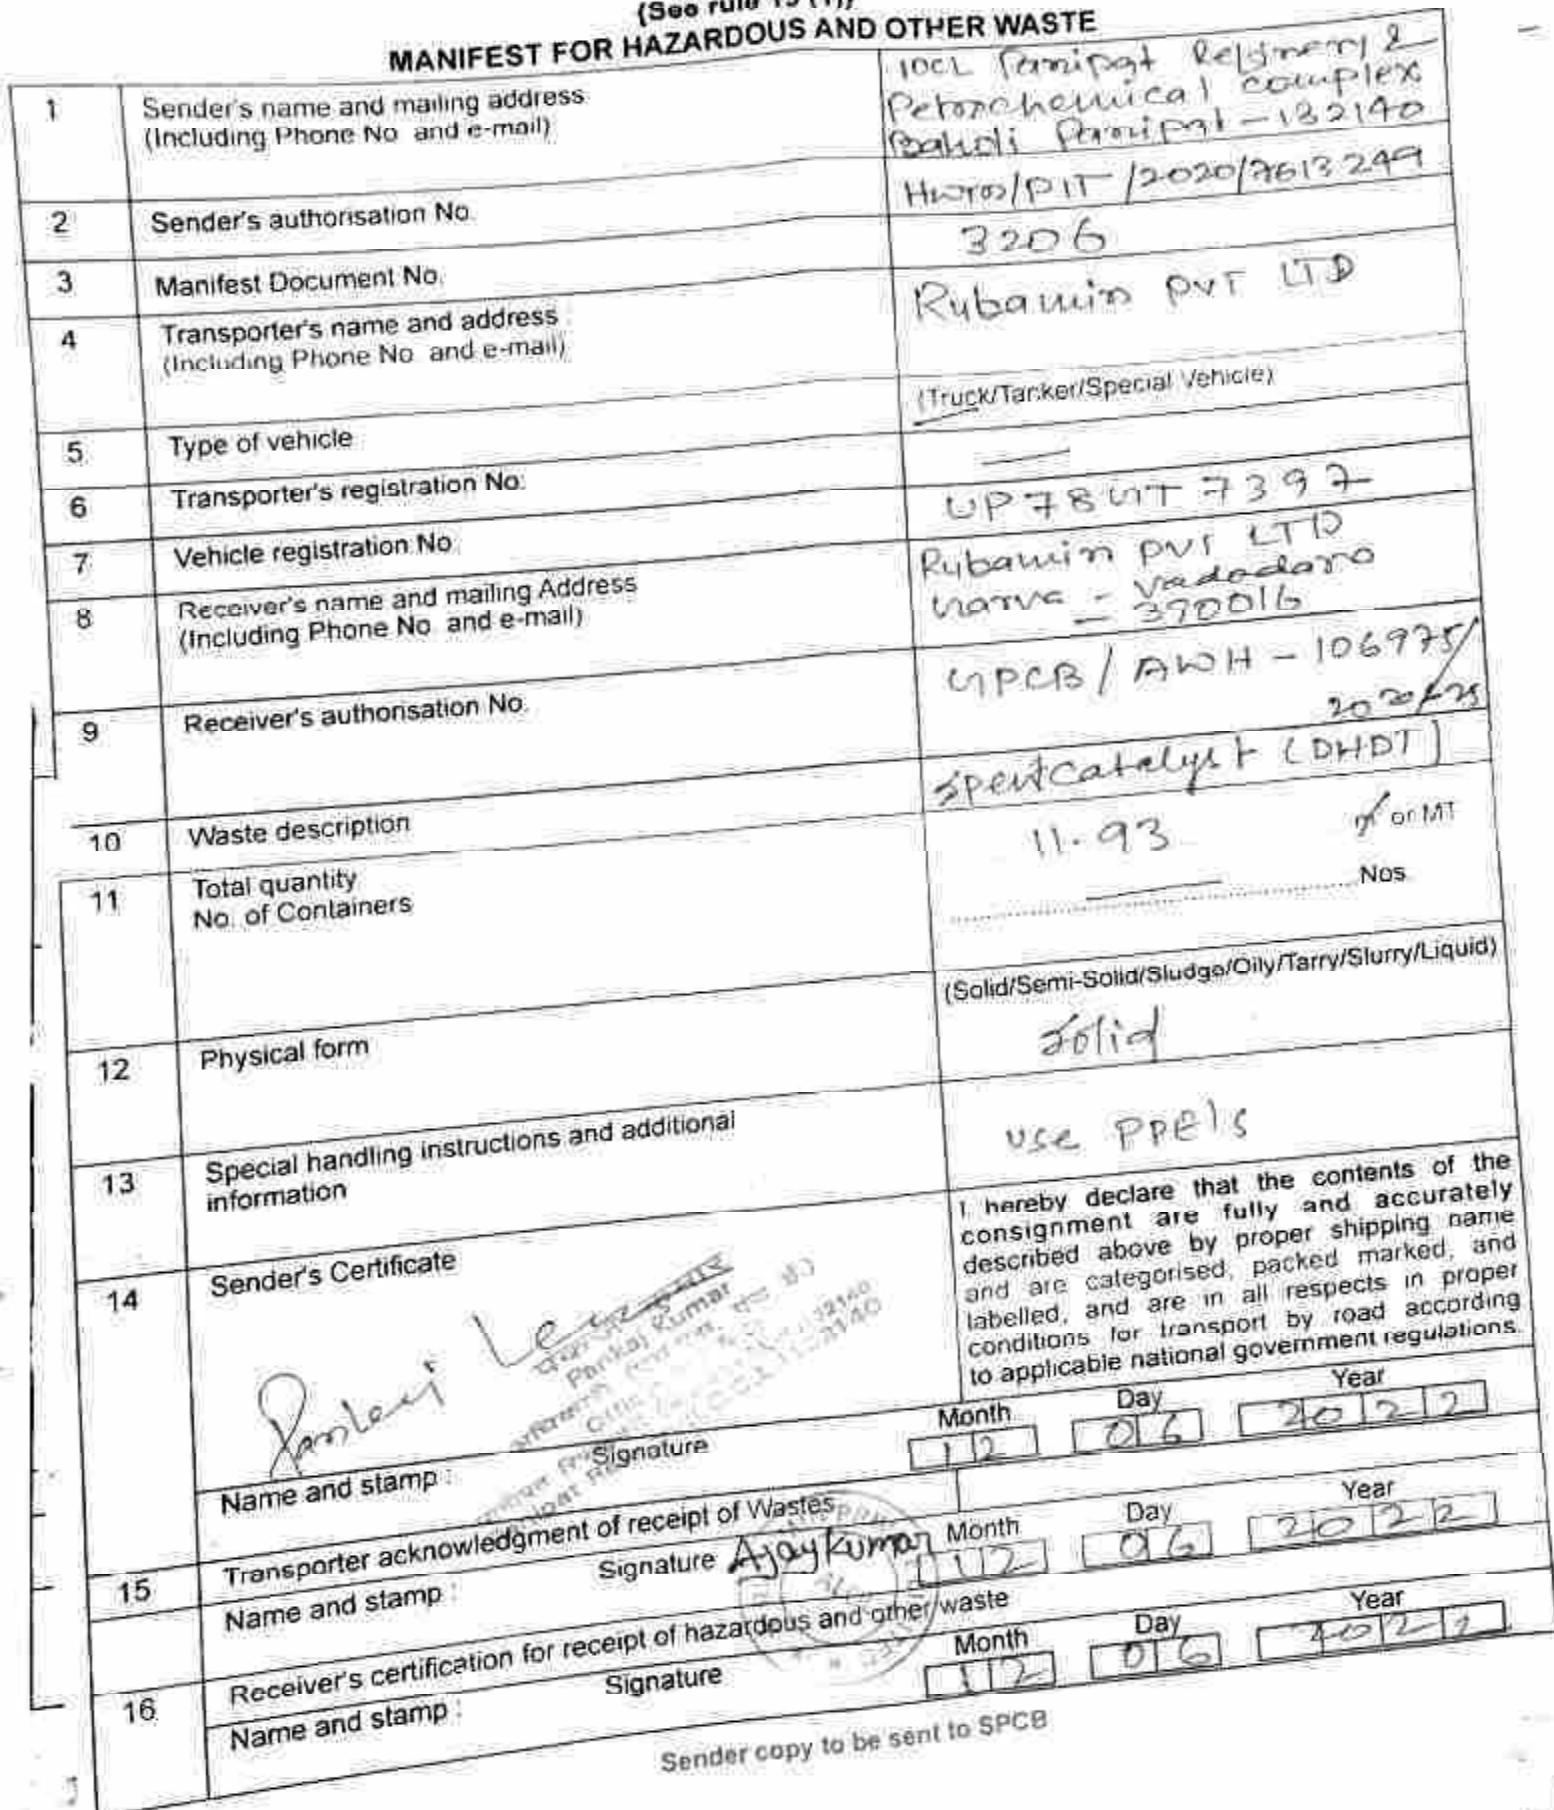 (See rule 19 (1))
MANIFEST FOR HAZARDOUS AND OTHER WASTE
1 Sender's name and mailing address (Including Phone No and e-mail)
IOCL Panipat Refinery &
Petrochemical complex
Baholi Panipat - 132140
2 Sender's authorisation No.
/PIT/2020/7613249
3 Manifest Document No.
3206
4 Transporter's name and address
(Including Phone No and e-mail)
Rubamin PVT LTD
5 Type of vehicle
(Truck/Tanker/Special Vehicle)
6 Transporter's registration No.
7 Vehicle registration No
UP78GT7397
8 Receiver's name and mailing Address
(Including Phone No and e-mail)
Rubamin PVT LTD
- Vadodara
- 390016
9 Receiver's authorisation No.
GPCB / AWH - 106975/
2020-25
10 Waste description
Spent Catalyst (DHDT)
11 Total quantity
No. of Containers
11.93 or MT
Nos
12 Physical form
(Solid/Semi-Solid/Sludge/Oily/Tarry/Slurry/Liquid)
Solid
13 Special handling instructions and additional
information
use PPE's
14 Sender's Certificate
I hereby declare that the contents of the
consignment are fully and accurately
described above by proper shipping name
and are categorised, packed marked, and
labelled, and are in all respects in proper
conditions for transport by road according
to applicable national government regulations.
Pankaj Kumar
Pankaj
Name and stamp : Signature
Month Day Year
12 06 2022
15 Transporter acknowledgment of receipt of Wastes
Name and stamp : Signature Ajay Kumar
Month Day Year
12 06 2022
16 Receiver's certification for receipt of hazardous and other waste
Name and stamp : Signature
Month Day Year
12 06 2022
Sender copy to be sent to SPCB